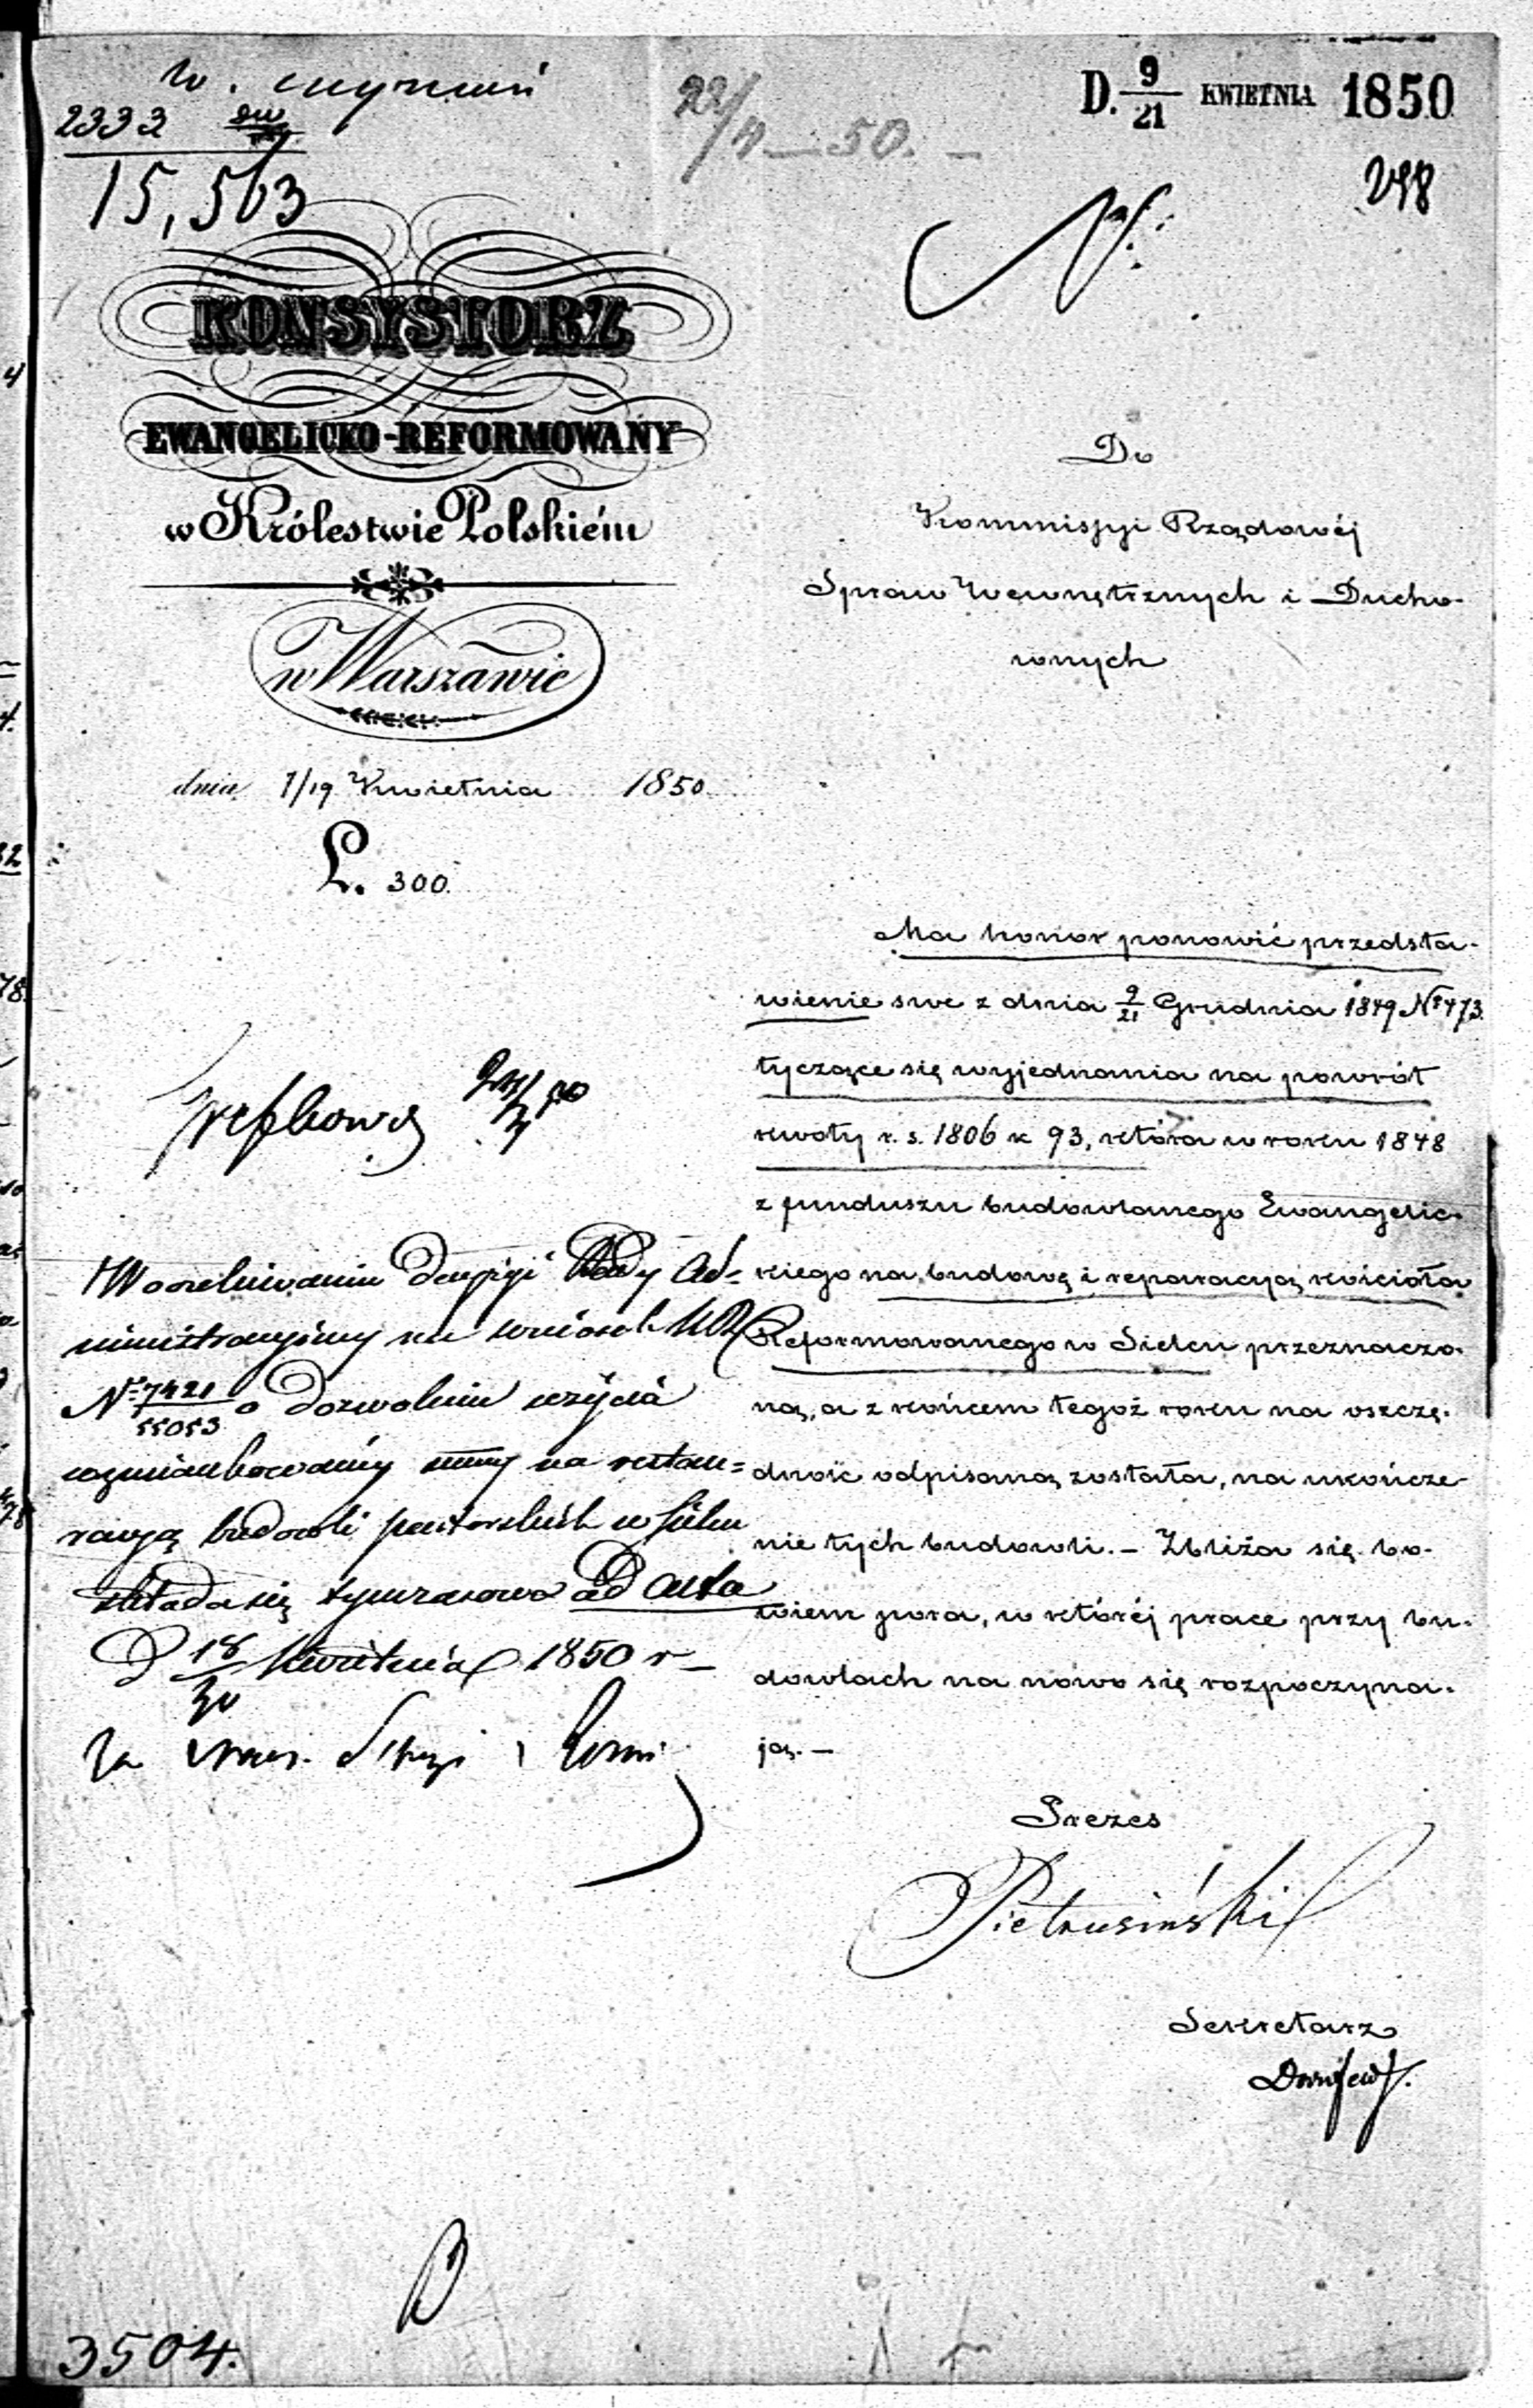 2333
15,563
22/4 — 50. —
D. 9/21 KWIETNIA 1850
298
KONSYSTORZ
EWANGELICKO-REFORMOWANY
w Królestwie Polskiém
w Warszawie
dnia 7/19 Kwietnia 1850.
L. 300.
Do
Kommissyi Rządowéj
Spraw Wewnętrznych i Ducho-
wnych
Ma honor ponowić przedsta-
wienie swe z dnia 9/21 Grudnia 1849 No 473.
tyczące się wyjednania na powrót
kwoty r. s. 1806 k 93, która w roku 1848
z funduszu budowlanego Ewangelic-
kiego na budowę i reparacyą kościoła
Reformowanego w Sielcu przeznaczo-
ną, a z końcem tegoż roku na oszczę-
dność odpisaną została, na ukończe-
nie tych budowli. — Zbliża się bo-
wiem pora, w któréj prace przy bu-
dowlach na nowo się rozpoczyna-
ją. —
Prezes
Pietrusiński
Sekretarz
W oczekiwaniu decyzyi Rady Ad-
ministracyjnéy na wniosek
No 7421/55053 o dozwolenie użycia
wzmiankowanéy summy na restau-
racyą budowli pastorskich w Sielcu
składa się tymczasowo ad acta
D 18/30 Kwietnia 1850 r —
3504.